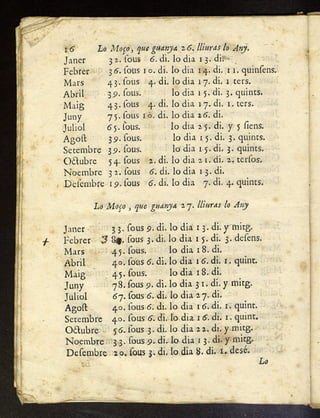 16 Lo Moço, que guanya 26. lliuras lo Any.
Janer 32. ſous 6. di. lo dia 13. di
Febrer 36. ſous 10. di. lo dia 14. di. 11. quinſens.
Mars 43. ſous 4. di. lo dia 17. di. 1 ters.
Abril 39. ſous. lo dia 15. di. 3. quints.
Maig 43. ſous 4. di. lo dia 17. di. 1. ters.
Juny 75. ſous 10. di. lo dia 26. di.
Juliol 65. ſous. lo dia 25. di. y 5 ſiens.
Agoſt 39. ſous. lo dia 15. di. 3. quints.
Setembre 39. ſous. lo dia 15. di. 3. quints.
Octubre 54. ſous 2. di. lo dia 21. di. 2. terſos.
Noembre 32. ſous 6. di. lo dia 13. di.
Deſembre 19. ſous 6. di. lo dia 7. di. 4. quints.
Lo Moço, que guanya 27. lliuras lo Any
Janer 33. ſous 9. di. lo dia 13. di. y mitg.
+ Febrer 38. ſous 3. di. lo dia 15. di. 3. deſens.
Mars 45. ſous. lo dia 18. di.
Abril 40. ſous 6. di. lo dia 16. di. 1. quint.
Maig 45. ſous. lo dia 18. di.
Juny 78. ſous 9. di. lo dia 31. di. y mitg.
Juliol 67. ſous 6. di. lo dia 27. di.
Agoſt 40. ſous 6. di. lo dia 16. di. 1. quint.
Setembre 40. ſous 6. di. lo dia 16. di. 1. quint.
Octubre 56. ſous 3. di. lo dia 22. di. y mitg.
Noembre 33. ſous 9. di. lo dia 13. di. y mitg.
Deſembre 20. ſous 3. di. lo dia 8. di. 1. desé.
Lo